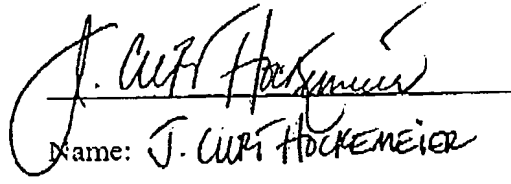 J. Curt Hockemeier
Name: J. CURT HOCKEMEIER